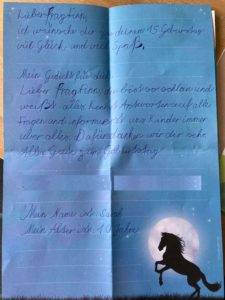 Lieber fragFinn,
ich wünsche dir zu deinem 15 Geburtstag
viel Glück und viel Spaß.
Mein Gedicht für dich:
Lieber fragFinn, du bist so schlau und
weißt alles, kennst Antworten auf alle
Fragen und informierst uns Kinder immer
über alles. Dafür danken wir dir sehr.
Alles Gute zum Geburtstag!
Mein Name ist: Sarah
Mein Alter ist: 10 Jahre